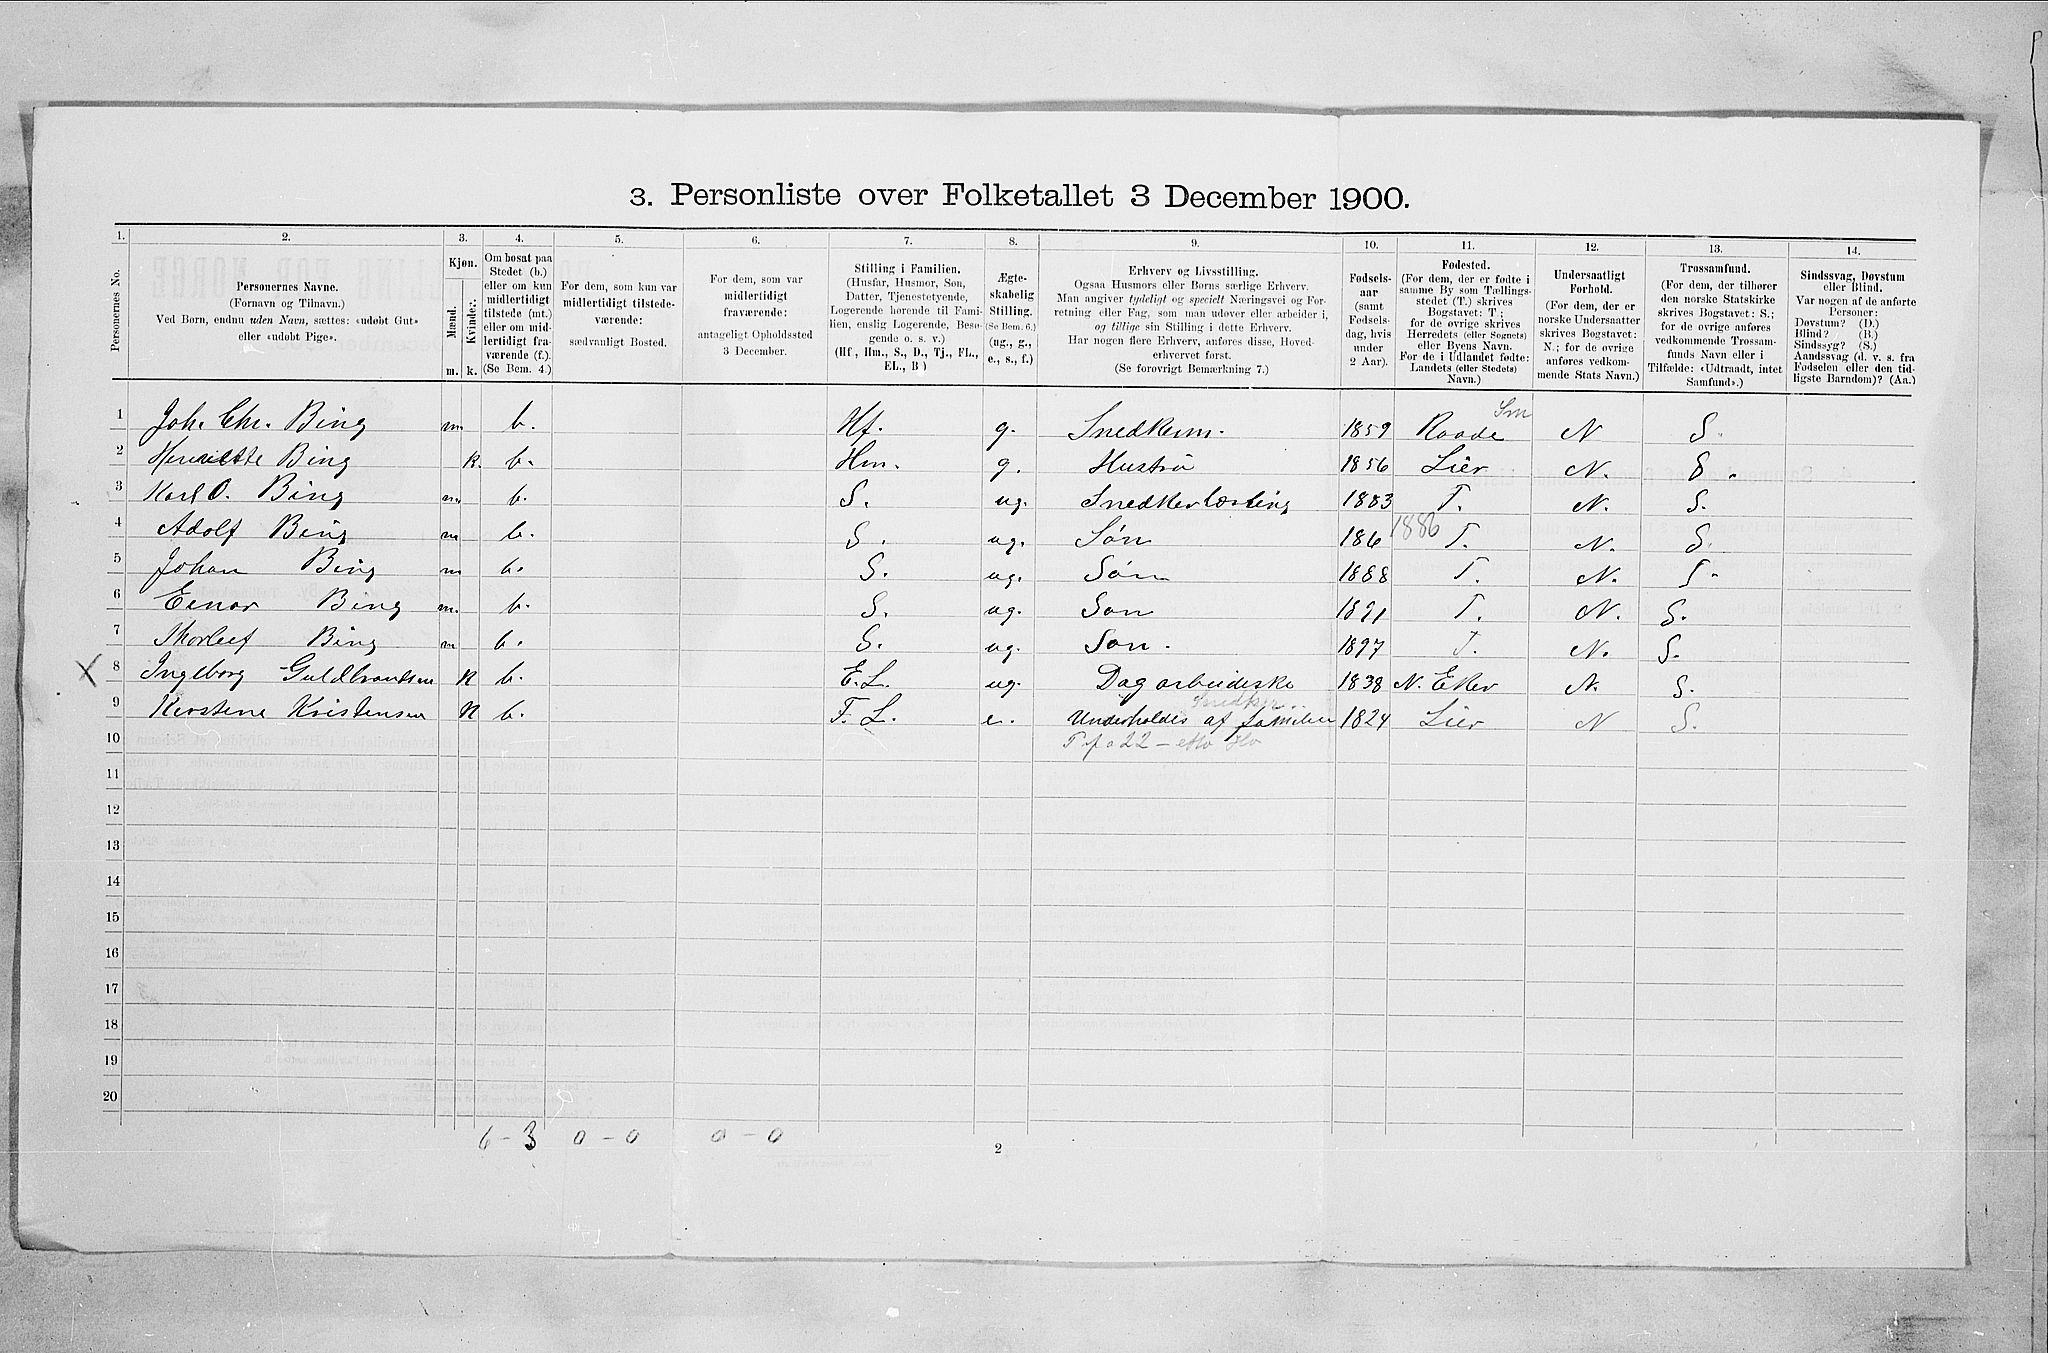 3. Personliste over Folketallet 3 December 1900.
1. 2. 3. 4. 5. 6. 7. 8. 9. 10. 11. 12. 13. 14.
Personernes No.
Personernes Navne.
(Fornavn og Tilnavn.)
Ved Børn, endnu uden Navn, sættes: «udøbt Gut»
eller «udøbt Pige».
Kjøn.
Mænd.
Kvinder.
m. k.
Om bosat paa
Stedet (b.)
eller om kun
midlertidigt
tilstede (mt.)
eller om mid-
lertidigt fra-
værende (f.).
(Se Bem. 4.)
For dem, som kun var
midlertidigt tilstede-
værende:
sædvanligt Bosted.
For dem, som var
midlertidigt
fraværende:
antageligt Opholdssted
3 December.
Stilling i Familien.
(Husfar, Husmor, Søn,
Datter, Tjenestetyende,
Logerende hørende til Fami-
lien, enslig Logerende, Besø-
gende o. s. v.)
(Hf, Hm., S., D., Tj., FL.,
EL., B)
Ægte-
skabelig
Stilling.
(Se Bem. 6.)
(ug., g.,
e., s., f.)
Erhverv og Livsstilling.
Ogsaa Husmors eller Børns særlige Erhverv.
Man angiver tydeligt og specielt Næringsvei og For-
retning eller Fag, som man udøver eller arbeider i,
og tillige sin Stilling i dette Erhverv.
Har nogen flere Erhverv, anføres disse, Hoved-
erhvervet først.
(Se forøvrigt Bemærkning 7.)
Fødsels-
aar
(samt
Fødsels-
dag, hvis
under
2 Aar).
Fødested.
(For dem, der er fødte i
samme By som Tællings-
stedet (T.) skrives
Bogstavet: T.;
for de øvrige skrives
Herredets (eller Sognets)
eller Byens Navn.
For de i Udlandet fødte:
Landets (eller Stedets)
Navn.)
Undersaatligt
Forhold.
(For dem, der er
norske Undersaatter
skrives Bogstavet:
N.; for de øvrige
anføres vedkom-
mende Stats Navn.)
Trossamfund.
(For dem, der tilhører
den norske Statskirke
skrives Bogstavet: S.;
for de øvrige anføres
vedkommende Trossam-
funds Navn eller i
Tilfælde: «Udtraadt, intet
Samfund».)
Sindssvag, Døvstum
eller Blind.
Var nogen af de anførte
Personer:
Døvstum? (D.)
Blind? (B.)
Sindssyg? (S.)
Aandssvag (d. v. s. fra
Fødselen eller den tid-
ligste Barndom)? (Aa.)
Sm
1 Joh. Chr. Bing m. b. Hf. g. Snedkerm. 1859 Raade N S.
2 Henriette Bing k. b. Hm. g. Hustrø 1856 Lier N. S.
3 Karl O. Bing m b. S. ug. Snedkerlærling 1883 T. N. S.
4 Adolf Bing m b. S. ug. Søn 186 1886 T. N. S.
5 Johan Bing m b. S. ug. Søn 1888 T. N. S.
6 Einar Bing m. b. S. ug. Søn 1891 T. N. S.
7 Thorleif Bing m b. S. ug. Søn. 1897 T. N. S.
X 8 Ingeborg Guldbrandsen K b. E. L. ug. Dagarbeideske 1838 N. Eker N. S.
Snedker
9 Kirstine Kristensen K b. F. L. e. Underholdes af familien 1824 Lier N S.
10
11
12
13
14
15
16
17
18
19
20
6 - 3 0 - 0 0 - 0
2